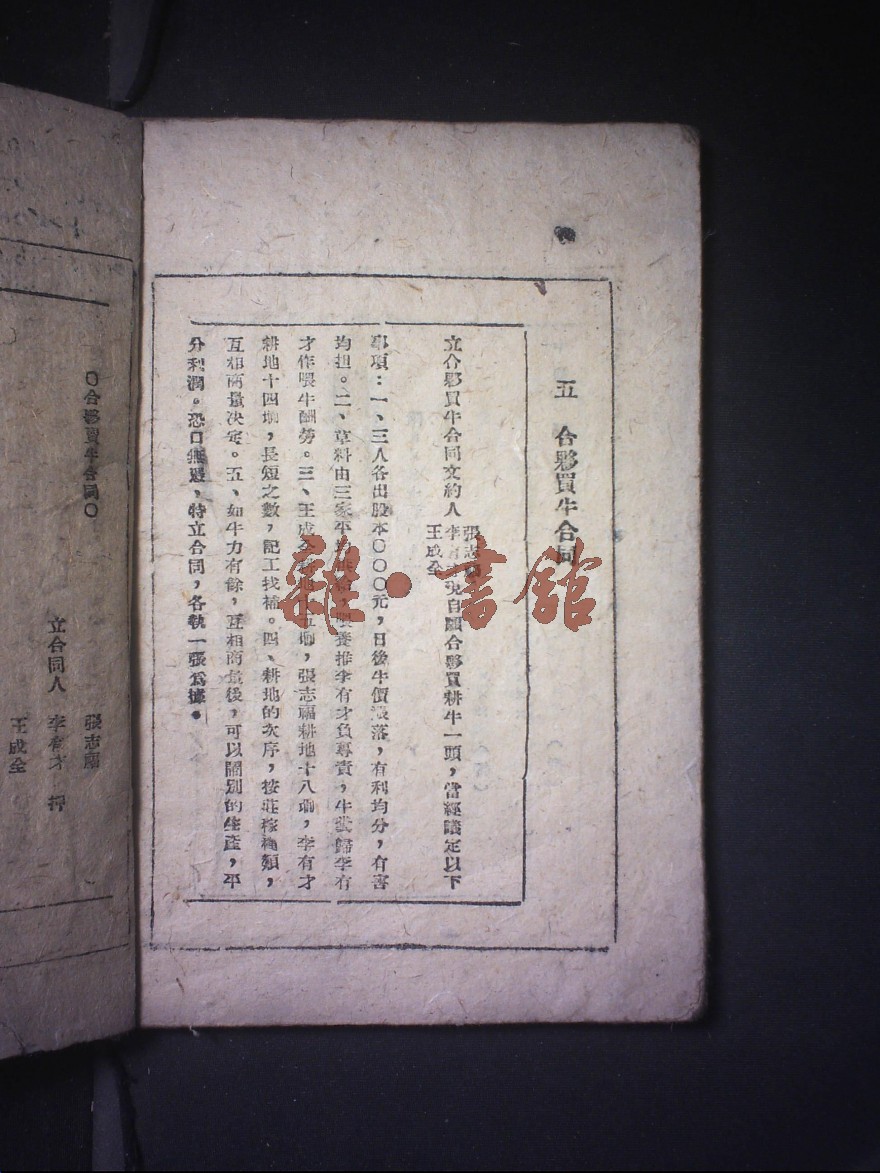 五 合夥買牛合同
立合夥買牛合同文約人
張志福
李有才
王成全
現自願合夥買耕牛一頭，當經議定以下
事項：一、三人各出股本〇〇〇元，日後牛價漲落，有利均分，有害
均担。二、草料由三家平均，喂養推李有才負專責，牛糞歸李有
才作喂牛酬勞。三、王成全耕地十五垧，張志福耕地十八垧，李有才
耕地十四垧，長短之數，記工找補。四、耕地的次序，按莊稼種類，
互相商量决定。五、如牛力有餘，互相商量後，可以鬧別的生產，平
分利潤。恐口無憑，特立合同，各執一張爲據。
〇合夥買牛合同〇
張志福
立合同人 李有才 押
王成全
雜·書館